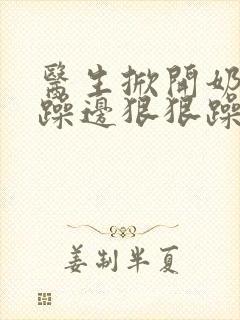 醫生掀開奶
躁邊狠狠躁
姜制半夏